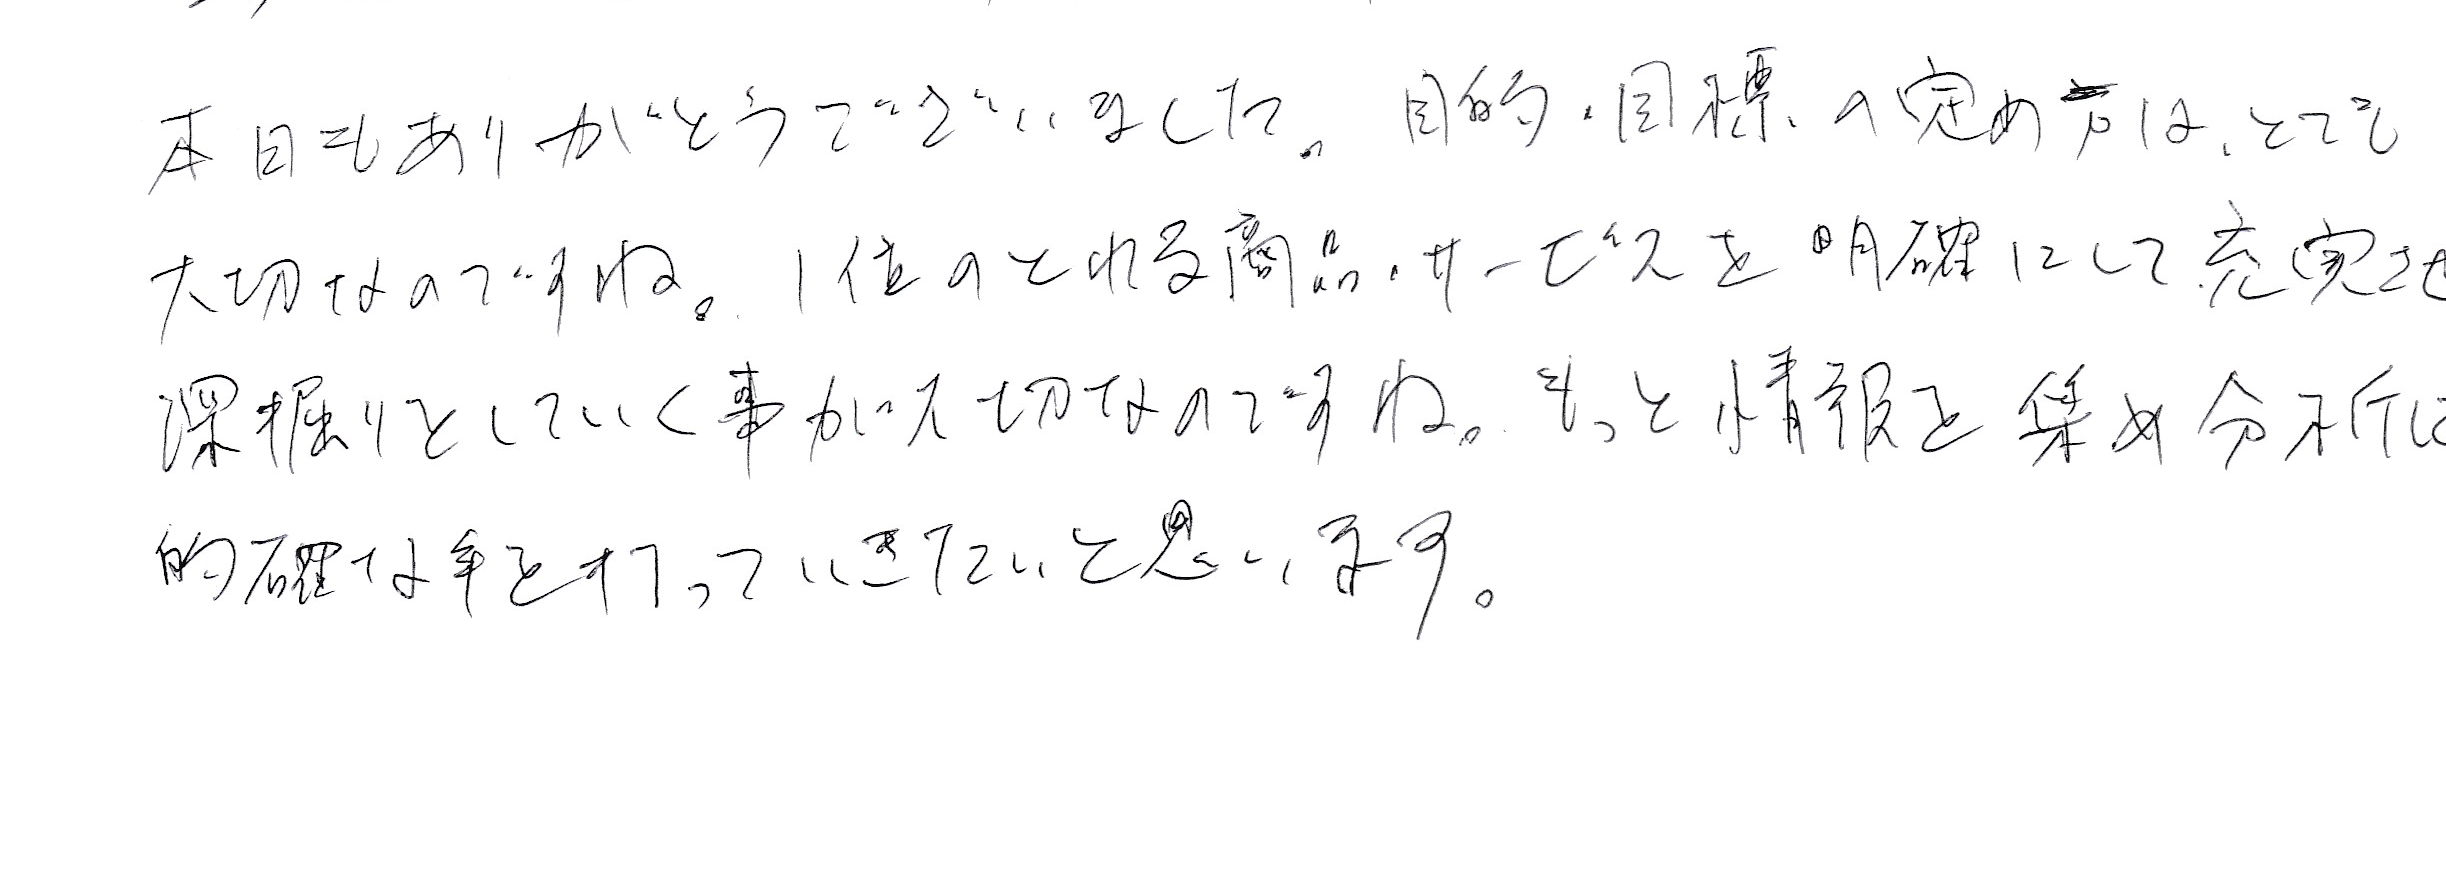 本日もありがとうございました。目的・目標の定め方は、とても
大切なのですね。1位のとれる商品・サービスを明確にして充実させ
深掘りをしていく事が大切なのですね。もっと情報を集め分析し
的確な手を打っていきたいと思います。